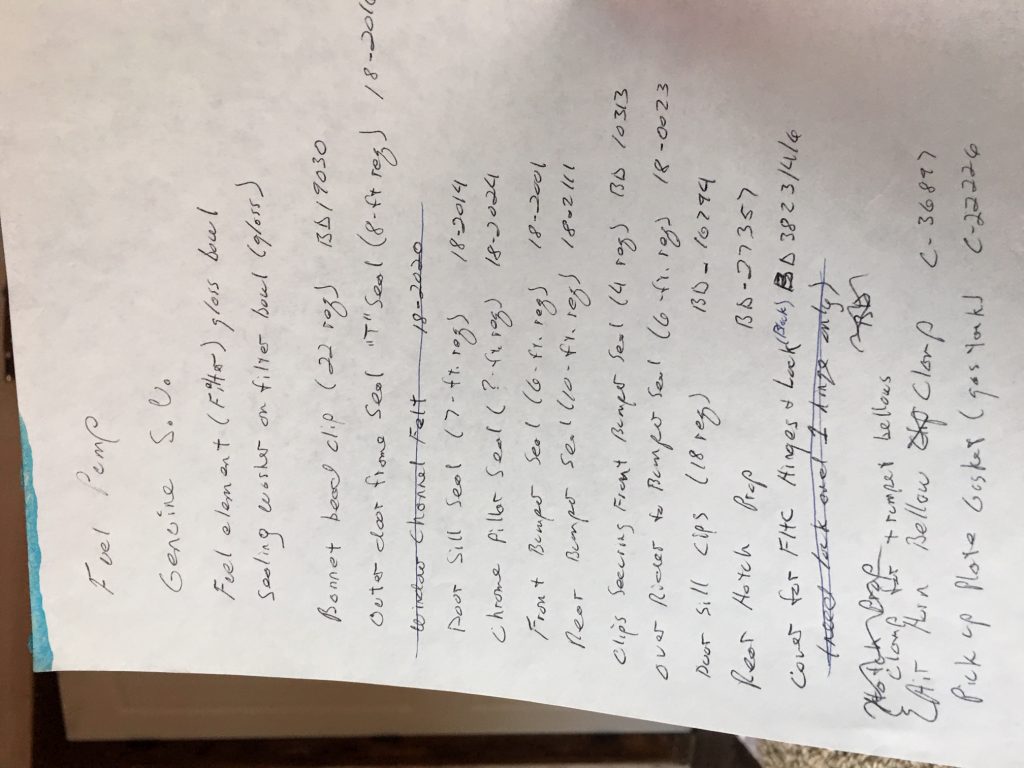 Fuel Pump
Genuine S.U.
Fuel element (Filter) glass bowl
Sealing washer on filter bowl (glass)
Bonnet bead clip (22 req) BD19030
Outer door frame seal "T" Seal (8-ft req) 18-2016
Window Channel Felt 18-2020
Door Sill Seal (7-ft. req) 18-2014
Chrome Pillar Seal (?-ft. req) 18-2024
Front Bumper Seal (6-ft. req) 18-2001
Rear Bumper Seal (10-ft. req) 18-2111
Clips Securing Front Bumper Seal (4 req) BD 10313
Over Rider to Bumper Seal (6-ft. req) 18-0023
Door Sill Clips (18 req) BD-16294
Rear Hatch Prop BD-27357
Cover for FHC Hinges & Lock (Back) BD 3823/4/6
(need lock one & 1 hinge only)
Hatch Prop BD
Clamp for trumpet bellows
Air Bellow Clamp C-36897
Pick up Plate Gasket (gas tank) C-22226